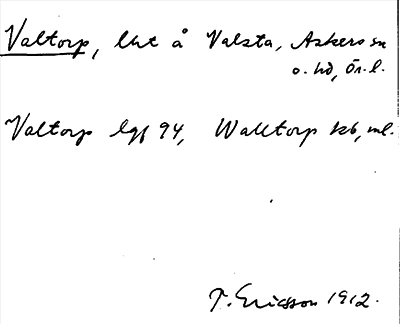 Valtorp, lht å Valsta, Askers sn
o. hd, Ör. l.
Valtorp lgf 94, Walltorp kb, ml.
T. Ericsson 1912.